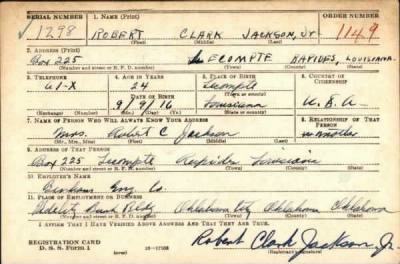 SERIAL NUMBER 1. NAME (Print) ORDER NUMBER
1298 ROBERT CLARK JACKSON, Jr. 1149
(First) (Middle) (Last)
2. ADDRESS (Print)
Box 225 LECOMPTE RAPIDES, LOUISIANA.
(Number and street or R. F. D. number) (Town) (County) (State)
3. TELEPHONE 4. AGE IN YEARS 5. PLACE OF BIRTH 6. COUNTRY OF CITIZENSHIP
61-X 24 Lecompte
DATE OF BIRTH (Town or county)
9/9/16 Louisiana U. S. A.
(Exchange) (Number) (Mo.) (Day) (Yr.) (State or country)
7. NAME OF PERSON WHO WILL ALWAYS KNOW YOUR ADDRESS 8. RELATIONSHIP OF THAT PERSON
Mrs. Robert C Jackson mother
(Mr., Mrs., Miss) (First) (Middle) (Last)
9. ADDRESS OF THAT PERSON
Box 225 Lecompte Rapides Louisiana
(Number and street or R. F. D. number) (Town) (County) (State)
10. EMPLOYER'S NAME
Eng Co.
11. PLACE OF EMPLOYMENT OR BUSINESS
Fidelity Bank Bldg Oklahoma City Oklahoma Oklahoma
(Number and street or R. F. D. number) (Town) (County) (State)
I AFFIRM THAT I HAVE VERIFIED ABOVE ANSWERS AND THAT THEY ARE TRUE.
REGISTRATION CARD
D. S. S. Form 1 (over) 16—17105 Robert Clark Jackson, Jr.
(Registrant's signature)